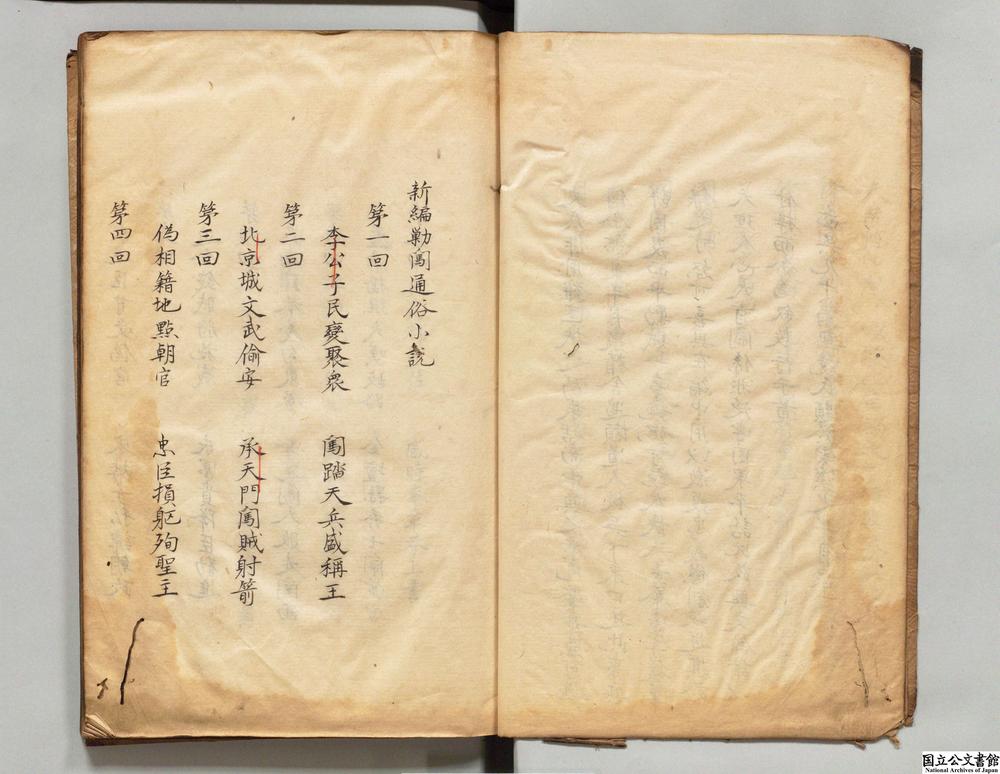 新編勦闖通俗小說
第一回
李公子民變聚衆 闖踏天兵盛稱王
第二回
北京城文武偷安 承天門闖賊射箭
第三回
偽相籍地點朝官 忠臣損軀殉聖主
第四回
国立公文書館
National Archives of Japan